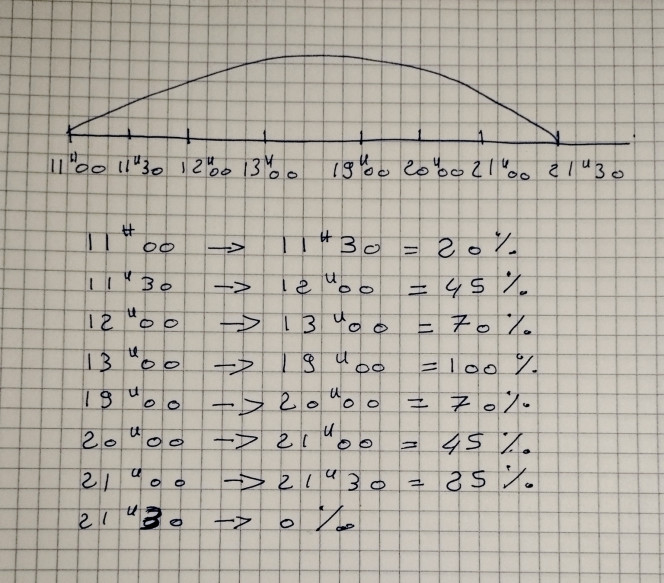 11ᵘ00 11ᵘ30 12ᵘ00 13ᵘ00 19ᵘ00 20ᵘ00 21ᵘ00 21ᵘ30
11ᵘ00 → 11ᵘ30 = 20%
11ᵘ30 → 12ᵘ00 = 45%
12ᵘ00 → 13ᵘ00 = 70%
13ᵘ00 → 19ᵘ00 = 100%
19ᵘ00 → 20ᵘ00 = 70%
20ᵘ00 → 21ᵘ00 = 45%
21ᵘ00 → 21ᵘ30 = 25%
21ᵘ30 → 0%